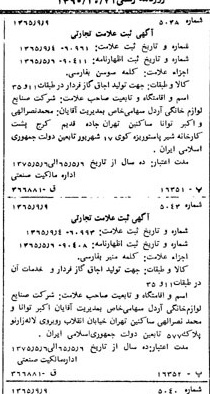 شماره ۵۰۳۸ ۱۳۶۵/۹/۹
آگهی ثبت علامت تجارتی
شماره و تاریخ ثبت علامت: ۹۰۹۶۱-۱۳۶۵/۹/۴
شماره و تاریخ ثبت اظهارنامه: ۹۰۴۱۱-۱۳۶۵/۵/۶
اجزاء علامت: کلمه سوسن بفارسی.
کالا و طبقات: جهت تولید اجاق گاز فردار در طبقات ۱۱ و ۳۵
اسم و اقامتگاه و تابعیت صاحب علامت: شرکت صنایع
لوازم خانگی آردل سهامی خاص بمدیریت آقایان: محمد نصرالهی
و اکبر توانا ساکنین تهران جاده قدیم کرج پشت
کارخانه شیر پاستوریزه کوی ۱۷ شهریور تابعین دولت جمهوری
اسلامی ایران.
مدت اعتبار: ده سال از تاریخ ۱۳۶۵/۵/۶ الی ۱۳۷۵/۵/۶
اداره مالکیت صنعتی
پ - ۱۶۳۵۱ ق - ۳۶۶۸۸۱
شماره ۵۰۴۳ ۱۳۶۵/۹/۹
آگهی ثبت علامت تجارتی
شماره و تاریخ ثبت علامت: ۹۰۹۹۳-۱۳۶۵/۹/۴
شماره و تاریخ ثبت اظهارنامه: ۹۰۴۰۸-۱۳۶۵/۵/۶
اجزاء علامت: کلمه منیر بفارسی.
کالا و طبقات: جهت تولید اجاق گاز فردار و خدمات آن
در طبقات ۱۱ و ۳۵
اسم و اقامتگاه و تابعیت صاحب علامت: شرکت صنایع
لوازم خانگی آردل سهامی خاص بمدیریت آقایان اکبر توانا و
محمد نصرالهی ساکنین تهران خیابان انقلاب روبروی لاله زارنو
پلاک ۵۷۷ تابعین دولت جمهوری اسلامی ایران.
مدت اعتبار: ده سال از تاریخ ۱۳۶۵/۵/۶ الی ۱۳۷۵/۵/۶
اداره مالکیت صنعتی
پ - ۱۶۳۵۲ ق - ۳۶۶۸۸۱
شماره ۵۰۴۰ ۱۳۶۵/۹/۹